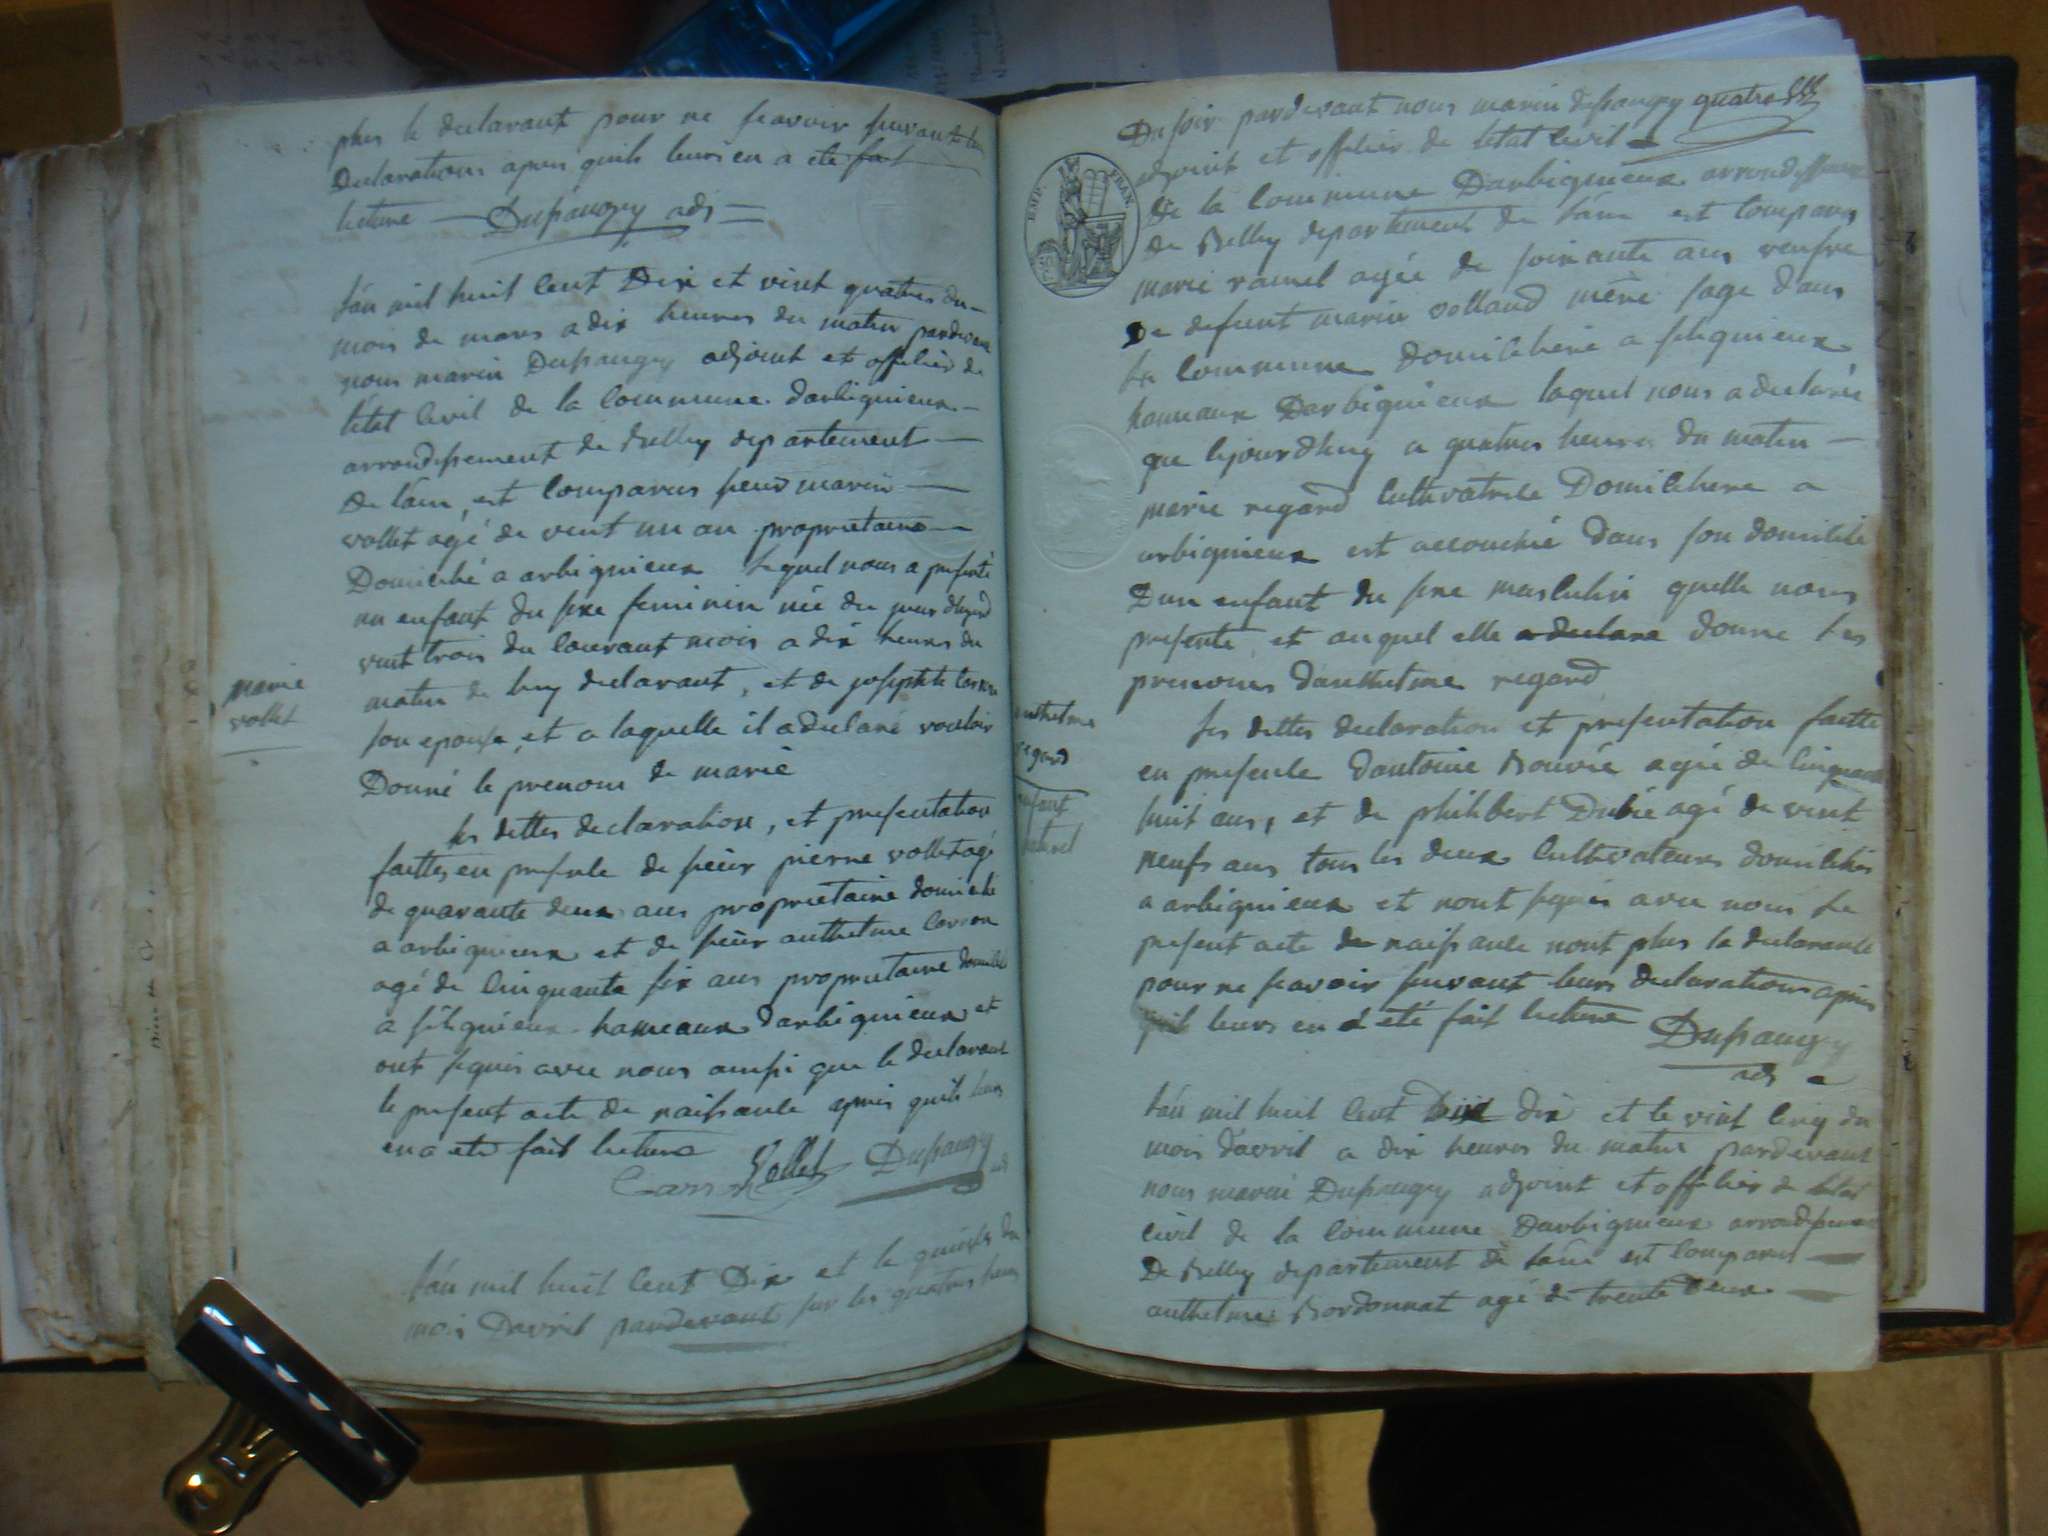 plus le declarant pour ne scavoir suivant leur
Declarations apres quils leurs en a eté fait
lecture — Dupaugey adj —
l'an mil huit cent Dix et vint quatres du
mois de mars a dix heures du matin pardevant
nous marin Dupaugey adjoint et officier de
letat Civil de la Commune darbignieux
arrondissement de Belley departement
De l'ain, est Comparus sieur marin
vollet agé de vent un an proprietaire
Domicilié a arbignieux Lequel nous a presenté
un enfant du sexe feminin née du jour dhyerd
vint trois du Courant mois a dix heures du
matin de luy declarant, et de josephte Carron
son epouse, et a laquelle il a declaré vouloir
Donné le prenom de marie
marie
vollet
les dittes declaration, et presentation
faittes en presence de sieur pierre vollet agé
de quarante deux ans proprietaire domicilié
a arbignieux et de sieur anthelme Carron
agé de Cinquante six ans proprietaire domicilié
a silignieux hameaux darbignieux et
ont signés avec nous ainsi que le declarant
le present acte de naissance apres quils leurs
en a eté fait lecture
Carron Vollet Dupaugey adj
l'an mil huit Cent Dix et le quinze du
mois Davril pardevant sur les quatres heures
Du soir pardevant nous marin dupaugey quatre
adjoint et officier de letat Civil
De la Commune Darbignieux arrondissement
de Belley departement de l'ain est Comparus
marie ramel agée de soixante ans veufve
De defunt marin volland mère sage dans
la Commune domiciliere a silignieux
hameaux Darbignieux laquel nous a declarée
que cejourdhuy a quatres heures du matin
marie regard Cultivatrice Domiciliere a
arbignieux est accouchée dans son domicile
Dun enfant du sexe masculin quelle nous
presente, et auquel elle a declare donne les
prenoms d'anthelme regard
EMP. FRAN.
anthelme
regard
enfant
naturel
les dittes declaration et presentation faitte
en presence dantoine Bouvié agée de Cinquante
huit ans, et de philibert Dubié agé de vint
neufs ans tous les deux Cultivateurs domiciliés
a arbignieux et nont signés avec nous le
present acte de naissance nont plus la declarante
pour ne scavoir suivant leurs declarations apres
quils leurs en a eté fait lecture Dupaugey
adj
l'an mil huit Cent dix et le vint Cinq du
mois davril a dix heures du matin pardevant
nous marin Dupaugey adjoint et officier de letat
civil de la Commune Darbignieux arrondissement
De Belley departement de l'ain est Comparus
anthelme Bordonnat agé de trente Deux